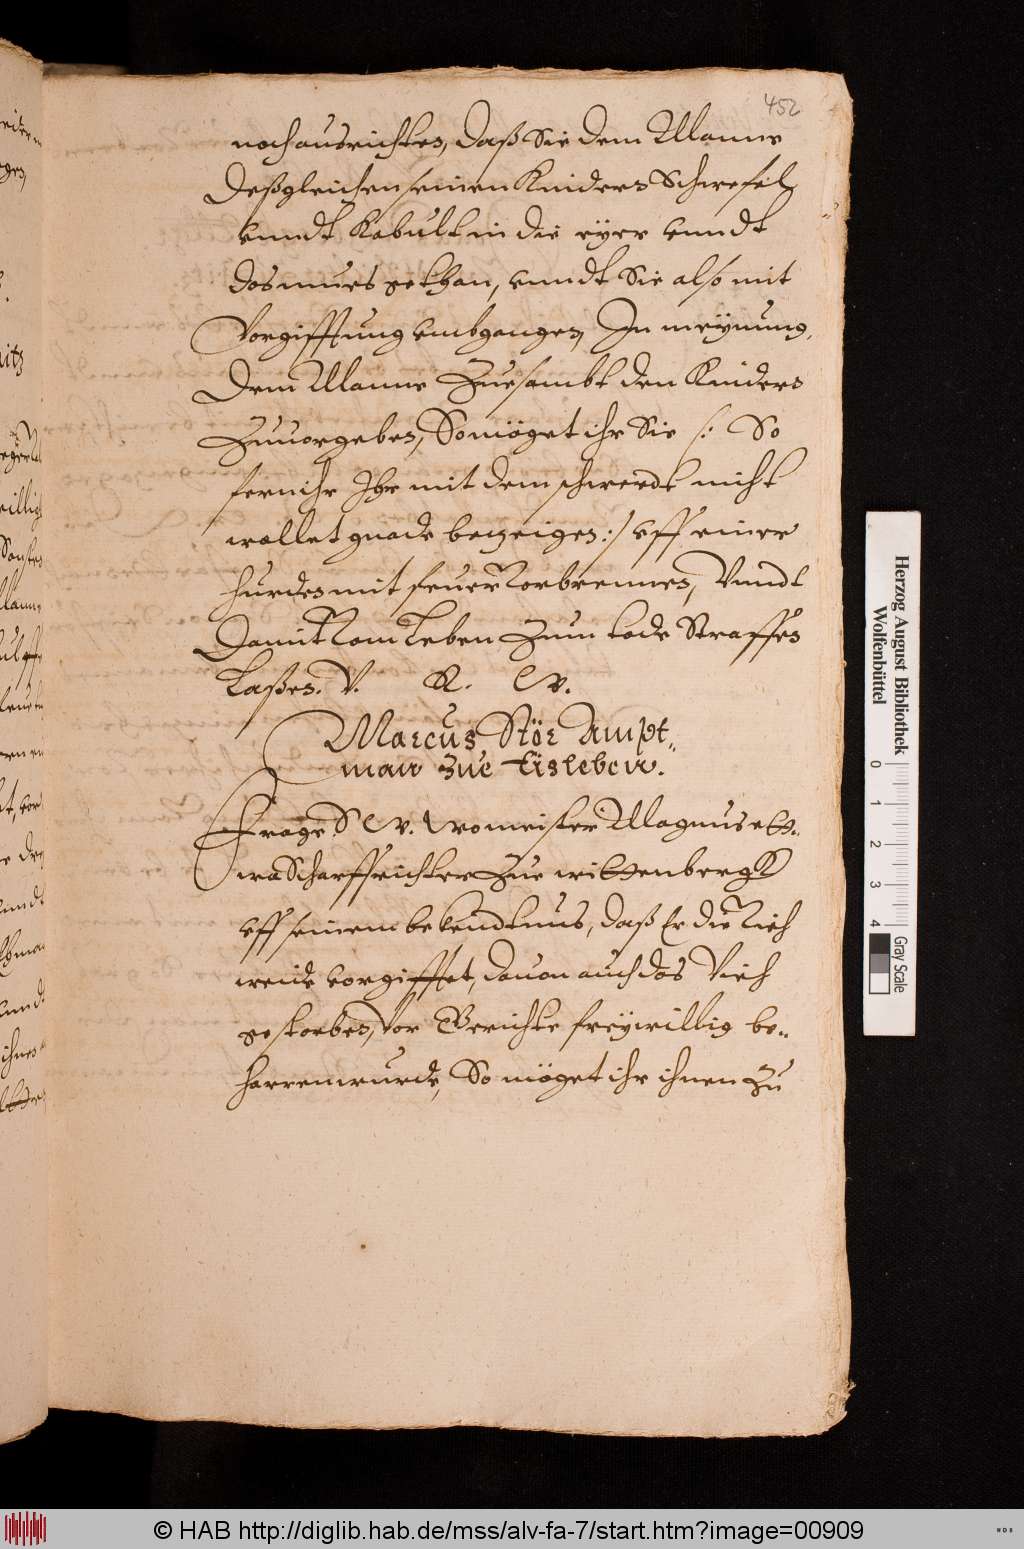 452
noch ausrichten, daß Sie dem Manne
Deßgleichen seinen Kindern Schwefel
vnndt Kobult in die eyer vnndt
das mues gethan, vnndt Sie also mit
Vorgifftung vmbgangen, In meynung,
Dem Manne Zuesambt den Kindern
Zuuorgeben, So möget ihr Sie /: So
fern ihr Ihr mit dem schwerdt nicht
wollet gnade beczeigen :/ vff einer
hurden mit feuer Vorbrennen, Vnndt
Damit Vom Leben Zum tode Straffen
Laßen. V. R. W.
Marcus Stör Ampt„
man zue Eisleben.
Frage. S W. meister Magnus ett„
wa Scharffrichter Zue wittenbergk
vff seinem bekendtnus, daß Er die Vieh
weide vorgifftet, dauon auch das Vieh
gestorben, Vor Gerichte freywillig be„
harren wurde, So möget ihr ihnen Zu
Herzog August Bibliothek
Wolfenbüttel
0 1 2 3 4
Gray Scale
© HAB http://diglib.hab.de/mss/alv-fa-7/start.htm?image=00909